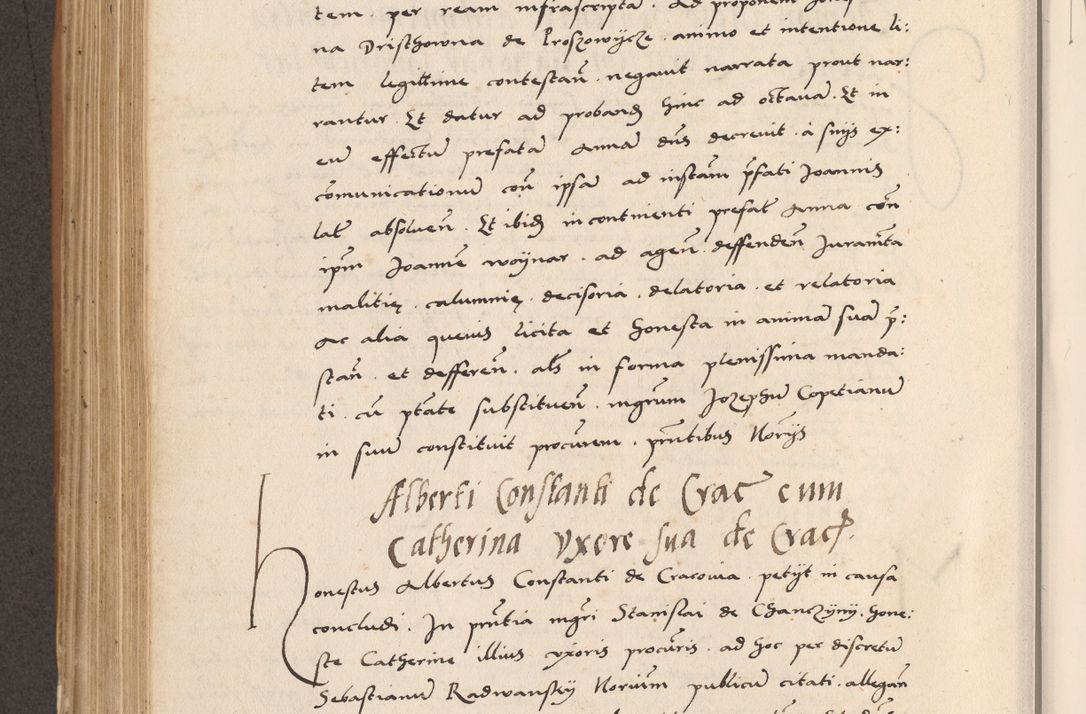 tem per ream infrascripta. Ad proponen
na Dristhowna de Proszowycze. animo et intentione li:
tem legittime contestan̄. negavit narrata prout nar:
rantur. Et datur ad proband̄ hinc ad octavā. Et in
eū effectū prefatā Annā dn̄s decrevit. a suys ex:
cōmunicationū con̄ ipsā ad instan̄ p̄fati Joannis
lat̄ absolven̄. Et ibid̄ in continenti prefat̄ Anna con̄
ipm̄ Joannē woynar. ad agen̄. deffenden̄ Juramta
malitię. calumnię. decisoria. delatoria. et relatoria
Ac alia quevis licita et honesta in animā suā p̄:
stan̄. et defferen̄. als̄ in forma plenissima manda:
ti. cū ptāte substituen̄. mgrum Jozephū Copetianū
in suū constituit procūrem. pn̄tibus Norijs
Alberti Constanti de Crac cum
Catherina vxore sua de Crac.
Honestus Albertus Constanti de Cracovia. petijt in causa
concludi. In pn̄tia mgri Stanislai de Chanczyny. hone:
ste Catherine illius vxoris procūris. ad hoc per discretū
Sebastianū Radwansky Noriūm publicū citati. allegan̄